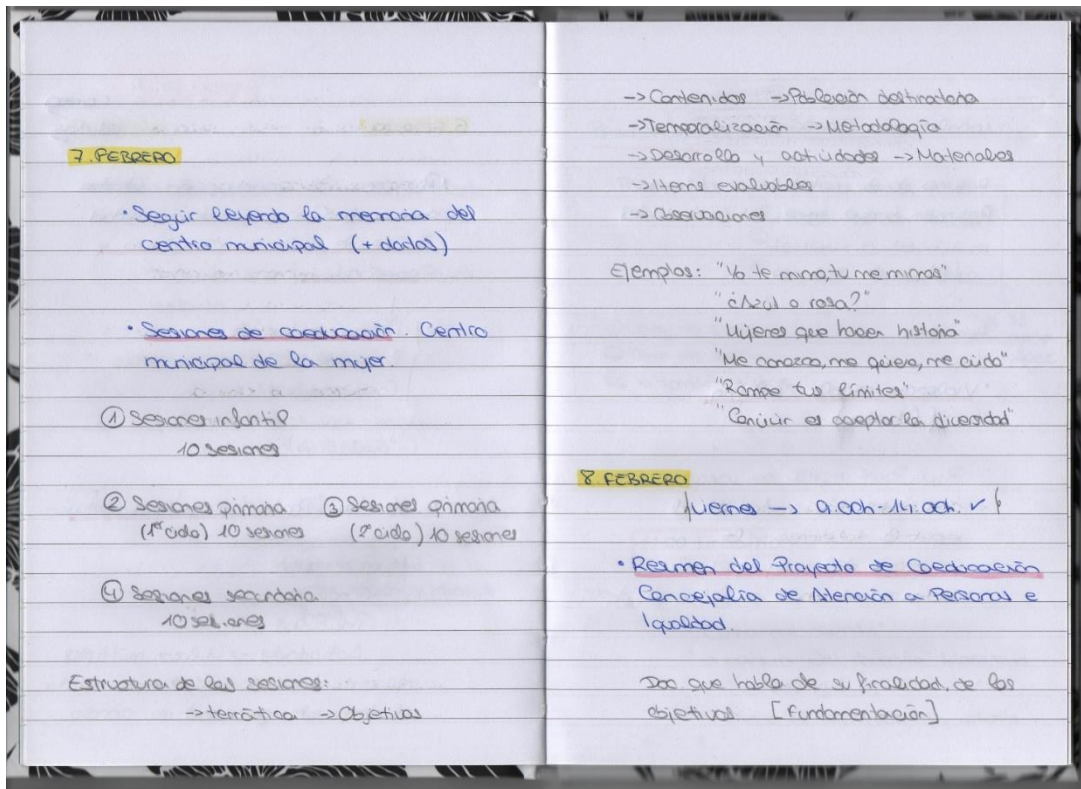 7. FEBRERO
· Seguir leyendo la memoria del
centro municipal (+ datos)
· Sesiones de coeducación. Centro
municipal de la mujer.
① Sesiones infantil
10 sesiones
② Sesiones primaria ③ Sesiones primaria
(1er ciclo) 10 sesiones (2º ciclo) 10 sesiones
④ Sesiones secundaria.
10 sesiones
Estructura de las sesiones:
→ temática → Objetivos
→ Contenidos → Población destinataria
→ Temporalización → Metodología
→ Desarrollo y actividades → Materiales
→ Items evaluables
→ Observaciones
Ejemplos: "Yo te mimo, tu me mimas"
"¿Azul o rosa?"
"Mujeres que hacen historia"
"Me conozco, me quiero, me cuido"
"Rompe tus límites"
"Convivir es aceptar la diversidad"
8. FEBRERO
Viernes → 9.00h - 14.00h. ✓
· Resumen del Proyecto de Coeducación
Concejalía de Atención a Personas e
Igualdad.
Doc que habla de su finalidad, de los
objetivos [fundamentación]